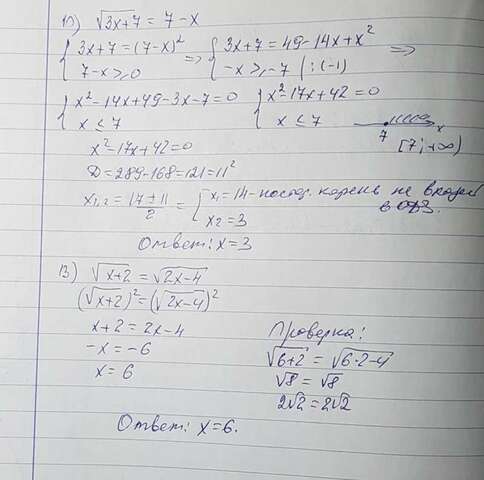 10) √3x+7 = 7-x
{ 3x+7 = (7-x)² => { 3x+7 = 49-14x+x² =>
7-x ≥ 0 -x ≥ -7 | :(-1)
{ x²-14x+49-3x-7=0 { x²-17x+42=0
x ≤ 7 x ≤ 7 7 x
[7; +∞)
x²-17x+42=0
D = 289-168=121=11²
x₁,₂ = 17±11/2 = { x₁=14 - постор. корень не входит
в ОДЗ.
x₂ = 3
Ответ: x=3
13) √x+2 = √2x-4
(√x+2)² = (√2x-4)²
x+2 = 2x-4
-x = -6
x = 6
Проверка:
√6+2 = √6·2-4
√8 = √8
2√2 = 2√2
Ответ: x=6.